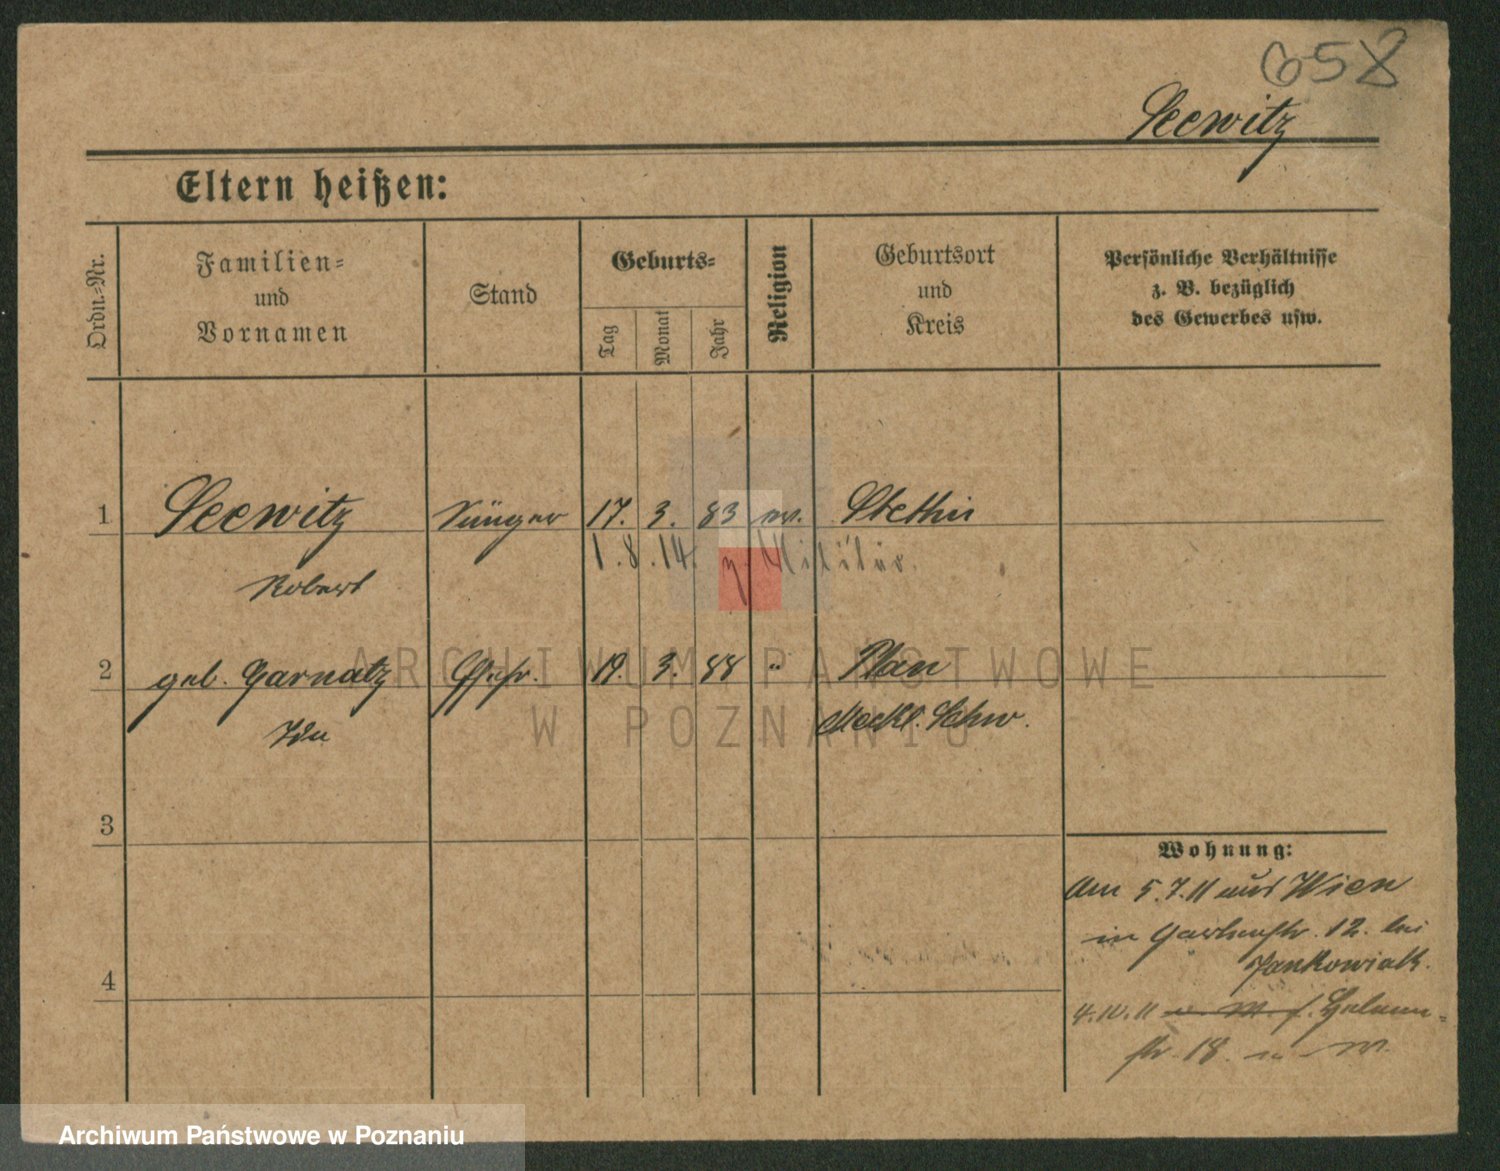 658
Seewitz
Eltern heißen:
Ordn.-Nr.
Familien-
und
Vornamen
Stand
Geburts-
Tag
Monat
Jahr
Religion
Geburtsort
und
Kreis
Persönliche Verhältnisse
z. B. bezüglich
des Gewerbes usw.
1 Seewitz Sänger 17. 3. 83 ev. Stettin
1.8.14. z. Militär.
Robert
2 geb. Garnatz Ehefr. 19. 3. 88 " Plau
Ida Meckl. Schw.
3
4
Wohnung:
Am 5.7.11 aus Wien
in Gartenstr. 12. bei
Jankowiak.
4.10.11
str. 18.
ARCHIWUM PAŃSTWOWE
W POZNANIU
Archiwum Państwowe w Poznaniu